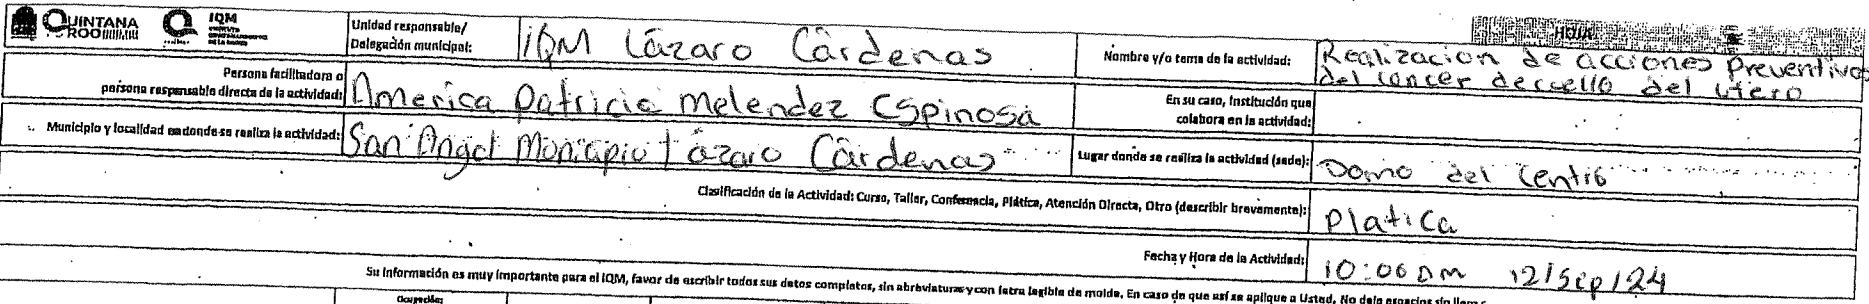 QUINTANA ROO
IQM
Unidad responsable/ Delegación municipal:
IQM Lázaro Cárdenas
HOJA
Nombre y/o tema de la actividad:
Realizacion de acciones Preventivas
del cancer de cuello del utero
Persona facilitadora o
persona responsable directa de la actividad:
America Patricia Melendez Espinosa
En su caso, Institución que
colabora en la actividad:
Municipio y localidad en donde se realiza la actividad:
San Angel Municipio Lázaro Cárdenas
Lugar donde se realiza la actividad (sede):
Domo del Centro
Clasificación de la Actividad: Curso, Taller, Conferencia, Plática, Atención Directa, Otro (describir brevemente):
Platica
Fecha y Hora de la Actividad:
10:00 am 12/Sep/24
Su información es muy importante para el IQM, favor de escribir todos sus datos completos, sin abreviaturas y con letra legible de molde. En caso de que así se aplique a Usted. No deje espacios sin llenar
Ocupación: